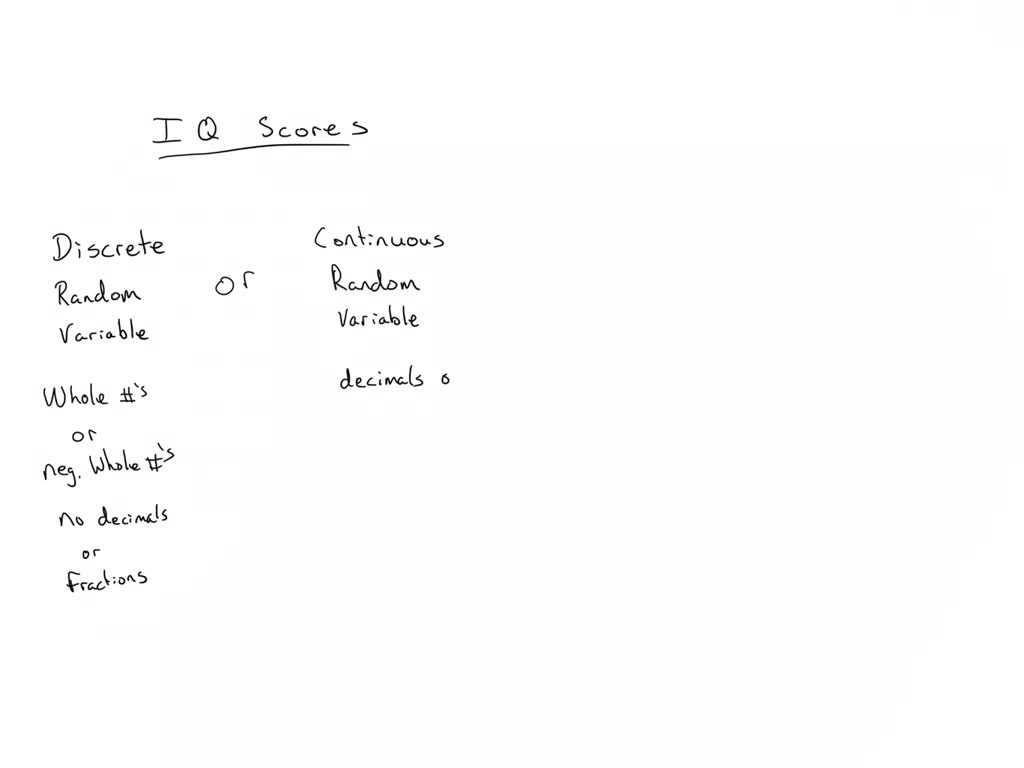 IQ Scores
Discrete
Random
Variable
or
Continuous
Random
Variable
Whole #'s
or
neg. Whole #'s
no decimals
or
fractions
decimals o